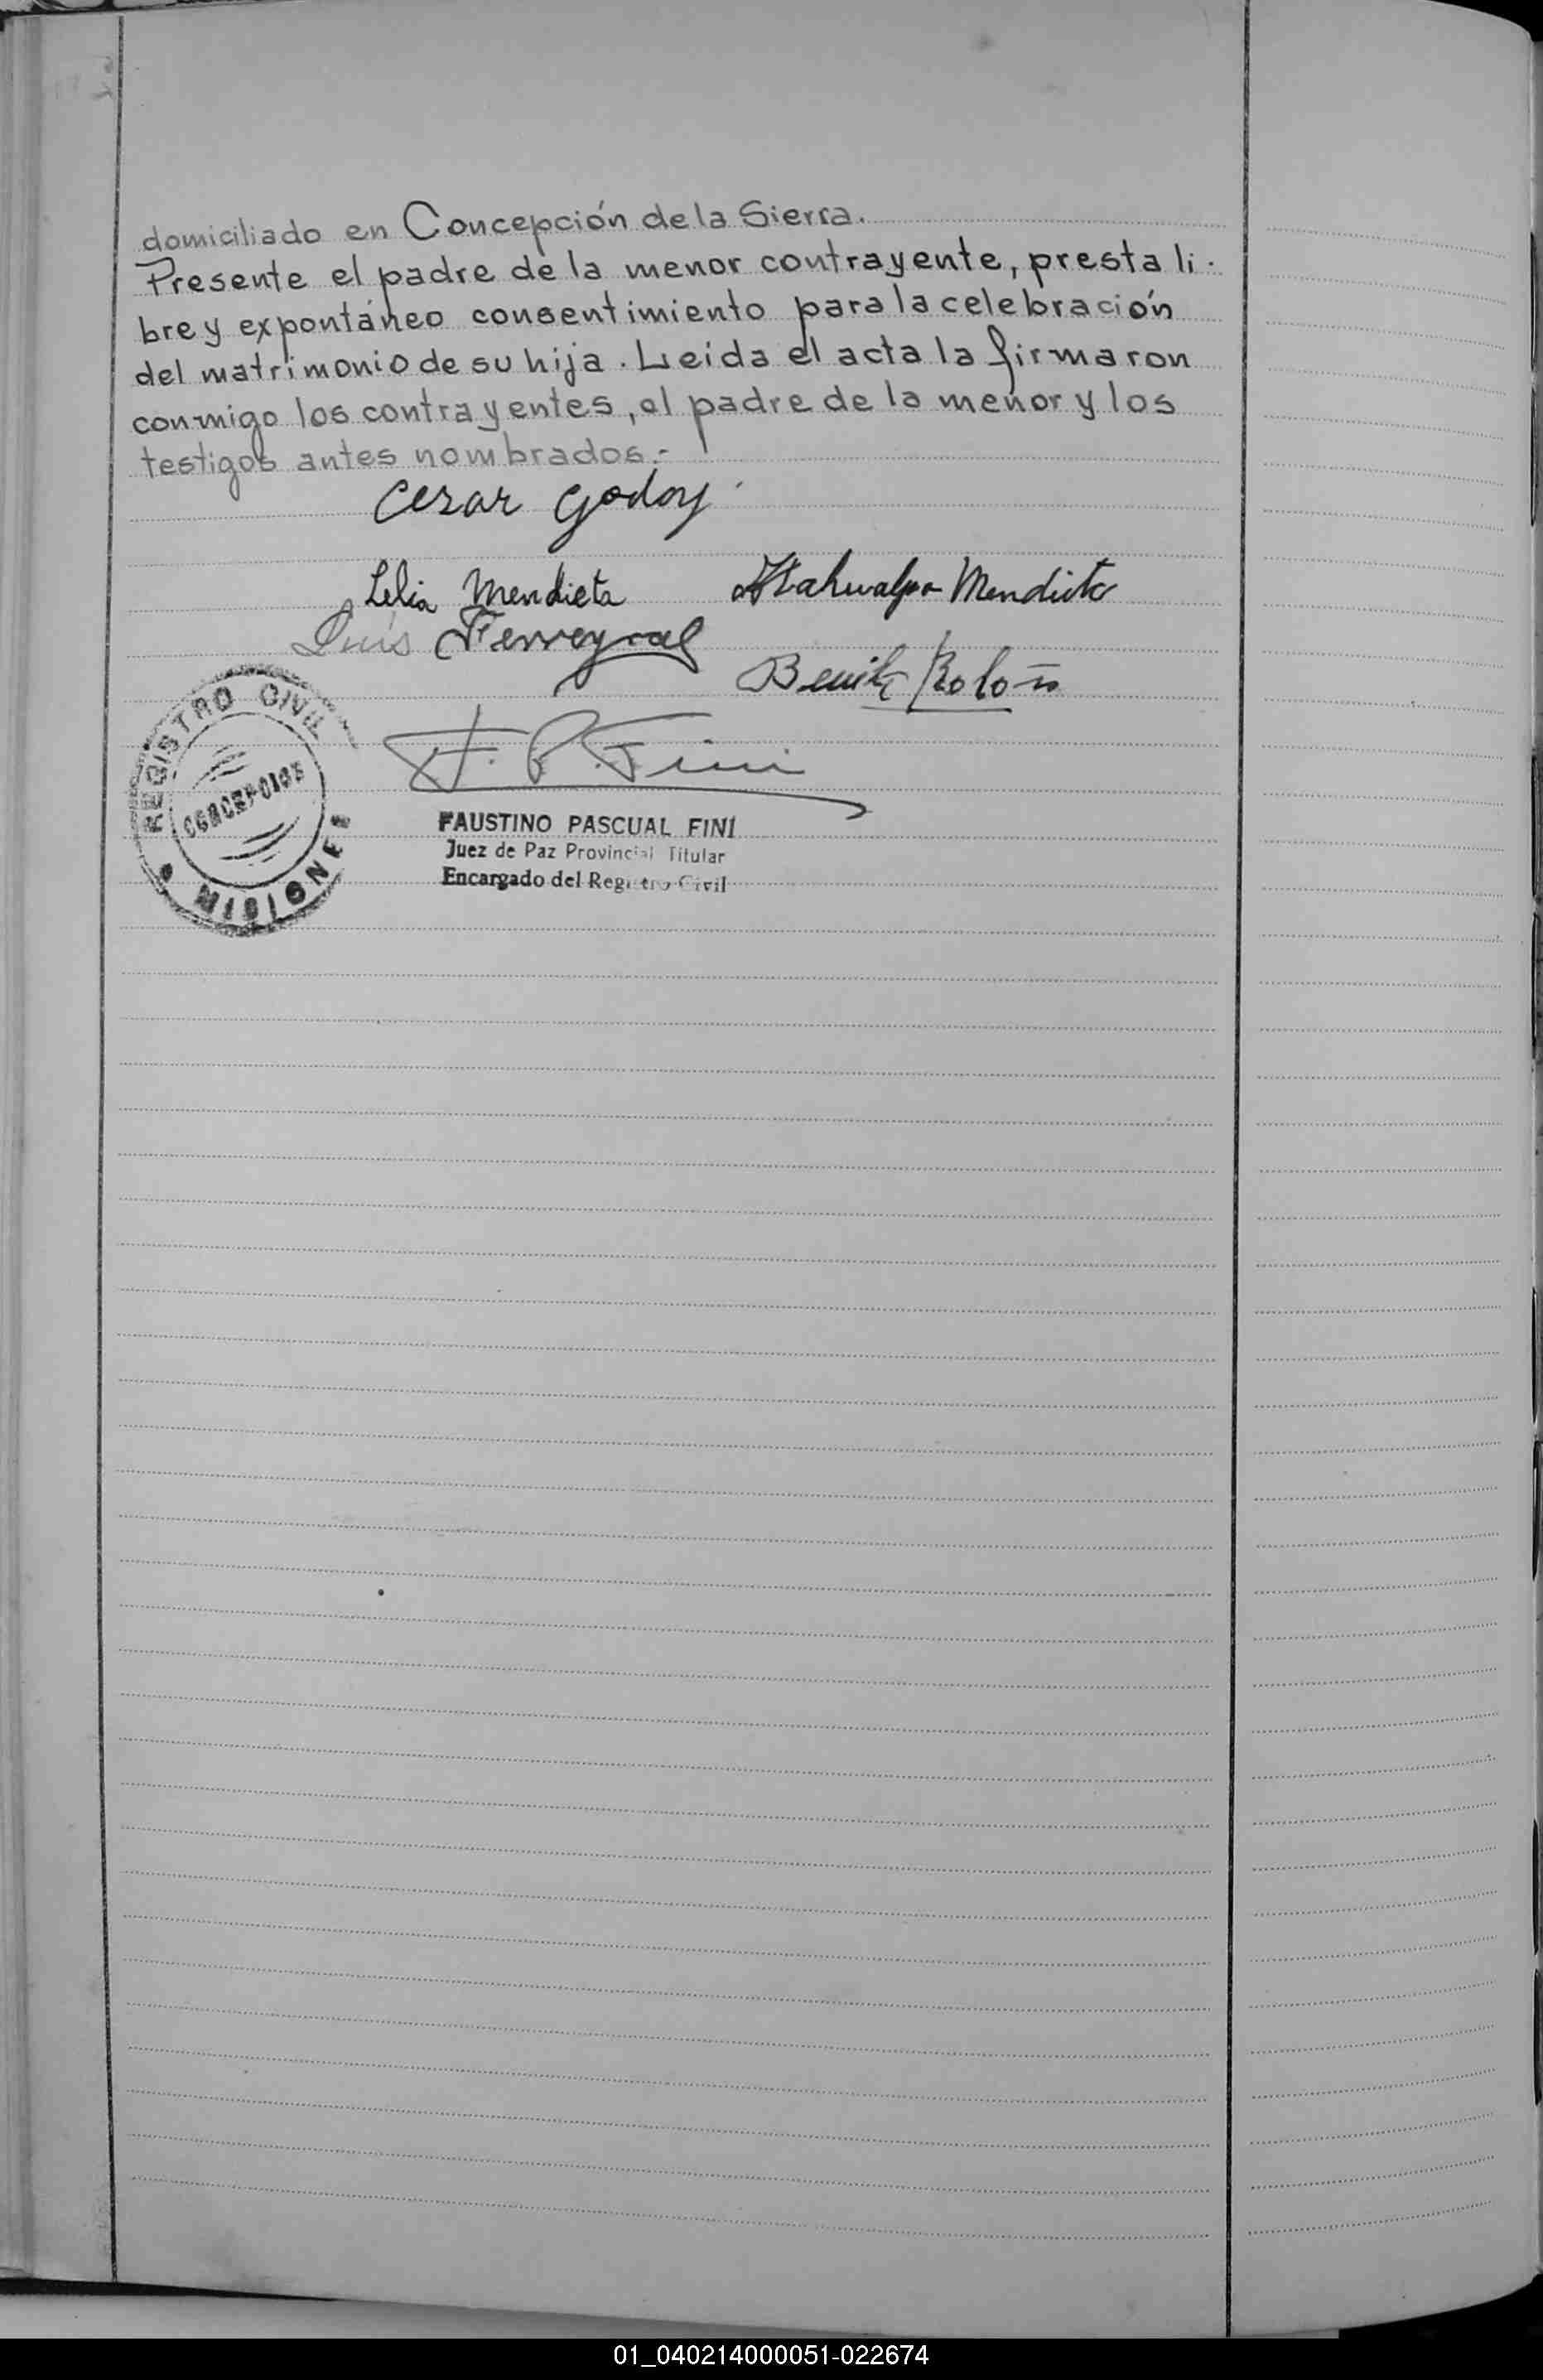 domiciliado en Concepción de la Sierra.
Presente el padre de la menor contrayente, presta li-
bre y expontáneo consentimiento para la celebración
del matrimonio de su hija. Leida el acta la firmaron
conmigo los contrayentes, el padre de la menor y los
testigos antes nombrados.-
Cesar Godoy
Lelia Mendieta Atahualpa Mendieta
Luis Ferreyra
Benito Rolón
REGISTRO CIVIL
CONCEPCION
MISIONES
F. P. Fini
FAUSTINO PASCUAL FINI
Juez de Paz Provincial Titular
Encargado del Registro Civil
01_040214000051-022674